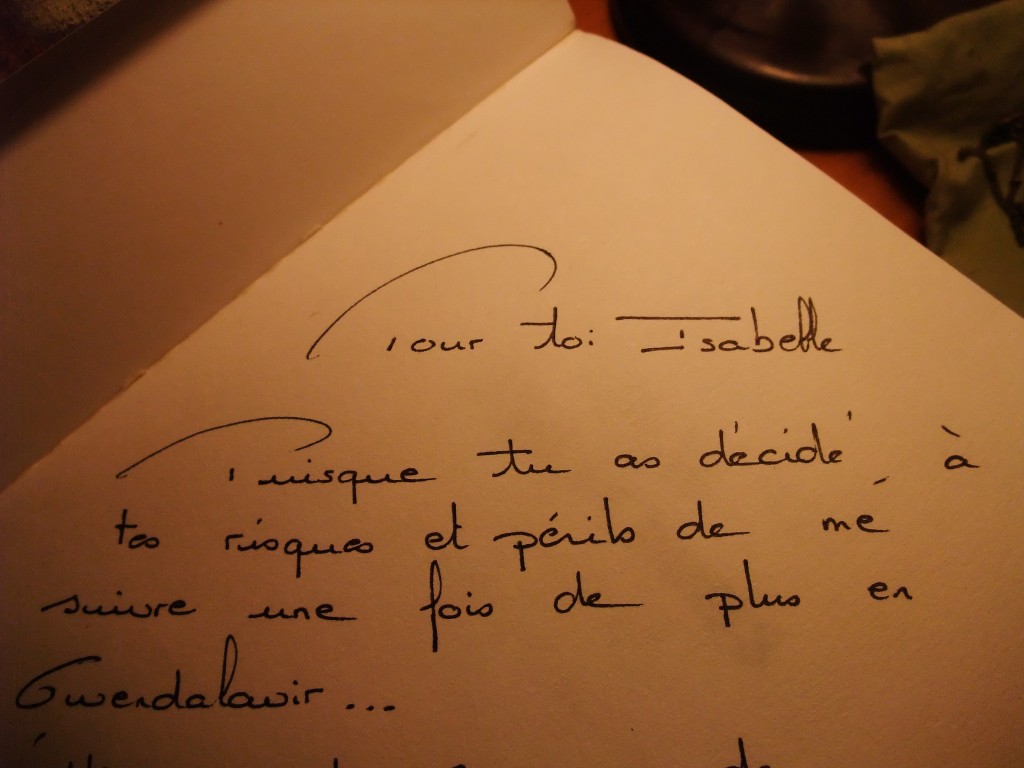 Pour toi Isabelle
Puisque tu as décidé, à
tes risques et périls de me
suivre une fois de plus en
Gwendalavir...